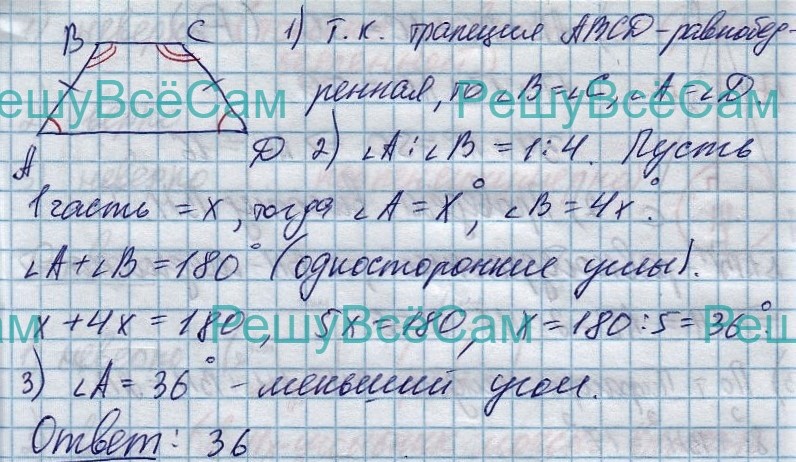 B C 1) Т.к. трапеция ABCD-равнобед-
ренная, то ∠B=∠C, ∠A=∠D.
РешуВсёСам РешуВсёСам
A D 2) ∠A:∠B=1:4. Пусть
1 часть =x, тогда ∠A=x°, ∠B=4x°.
∠A+∠B=180° (односторонние углы).
x+4x=180, 5x=180, x=180:5=36°.
РешуВсёСам РешуВсёСам
3) ∠A=36° - меньший угол.
Ответ: 36